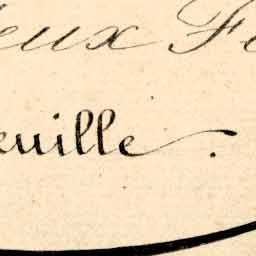 eux Fe
euille.